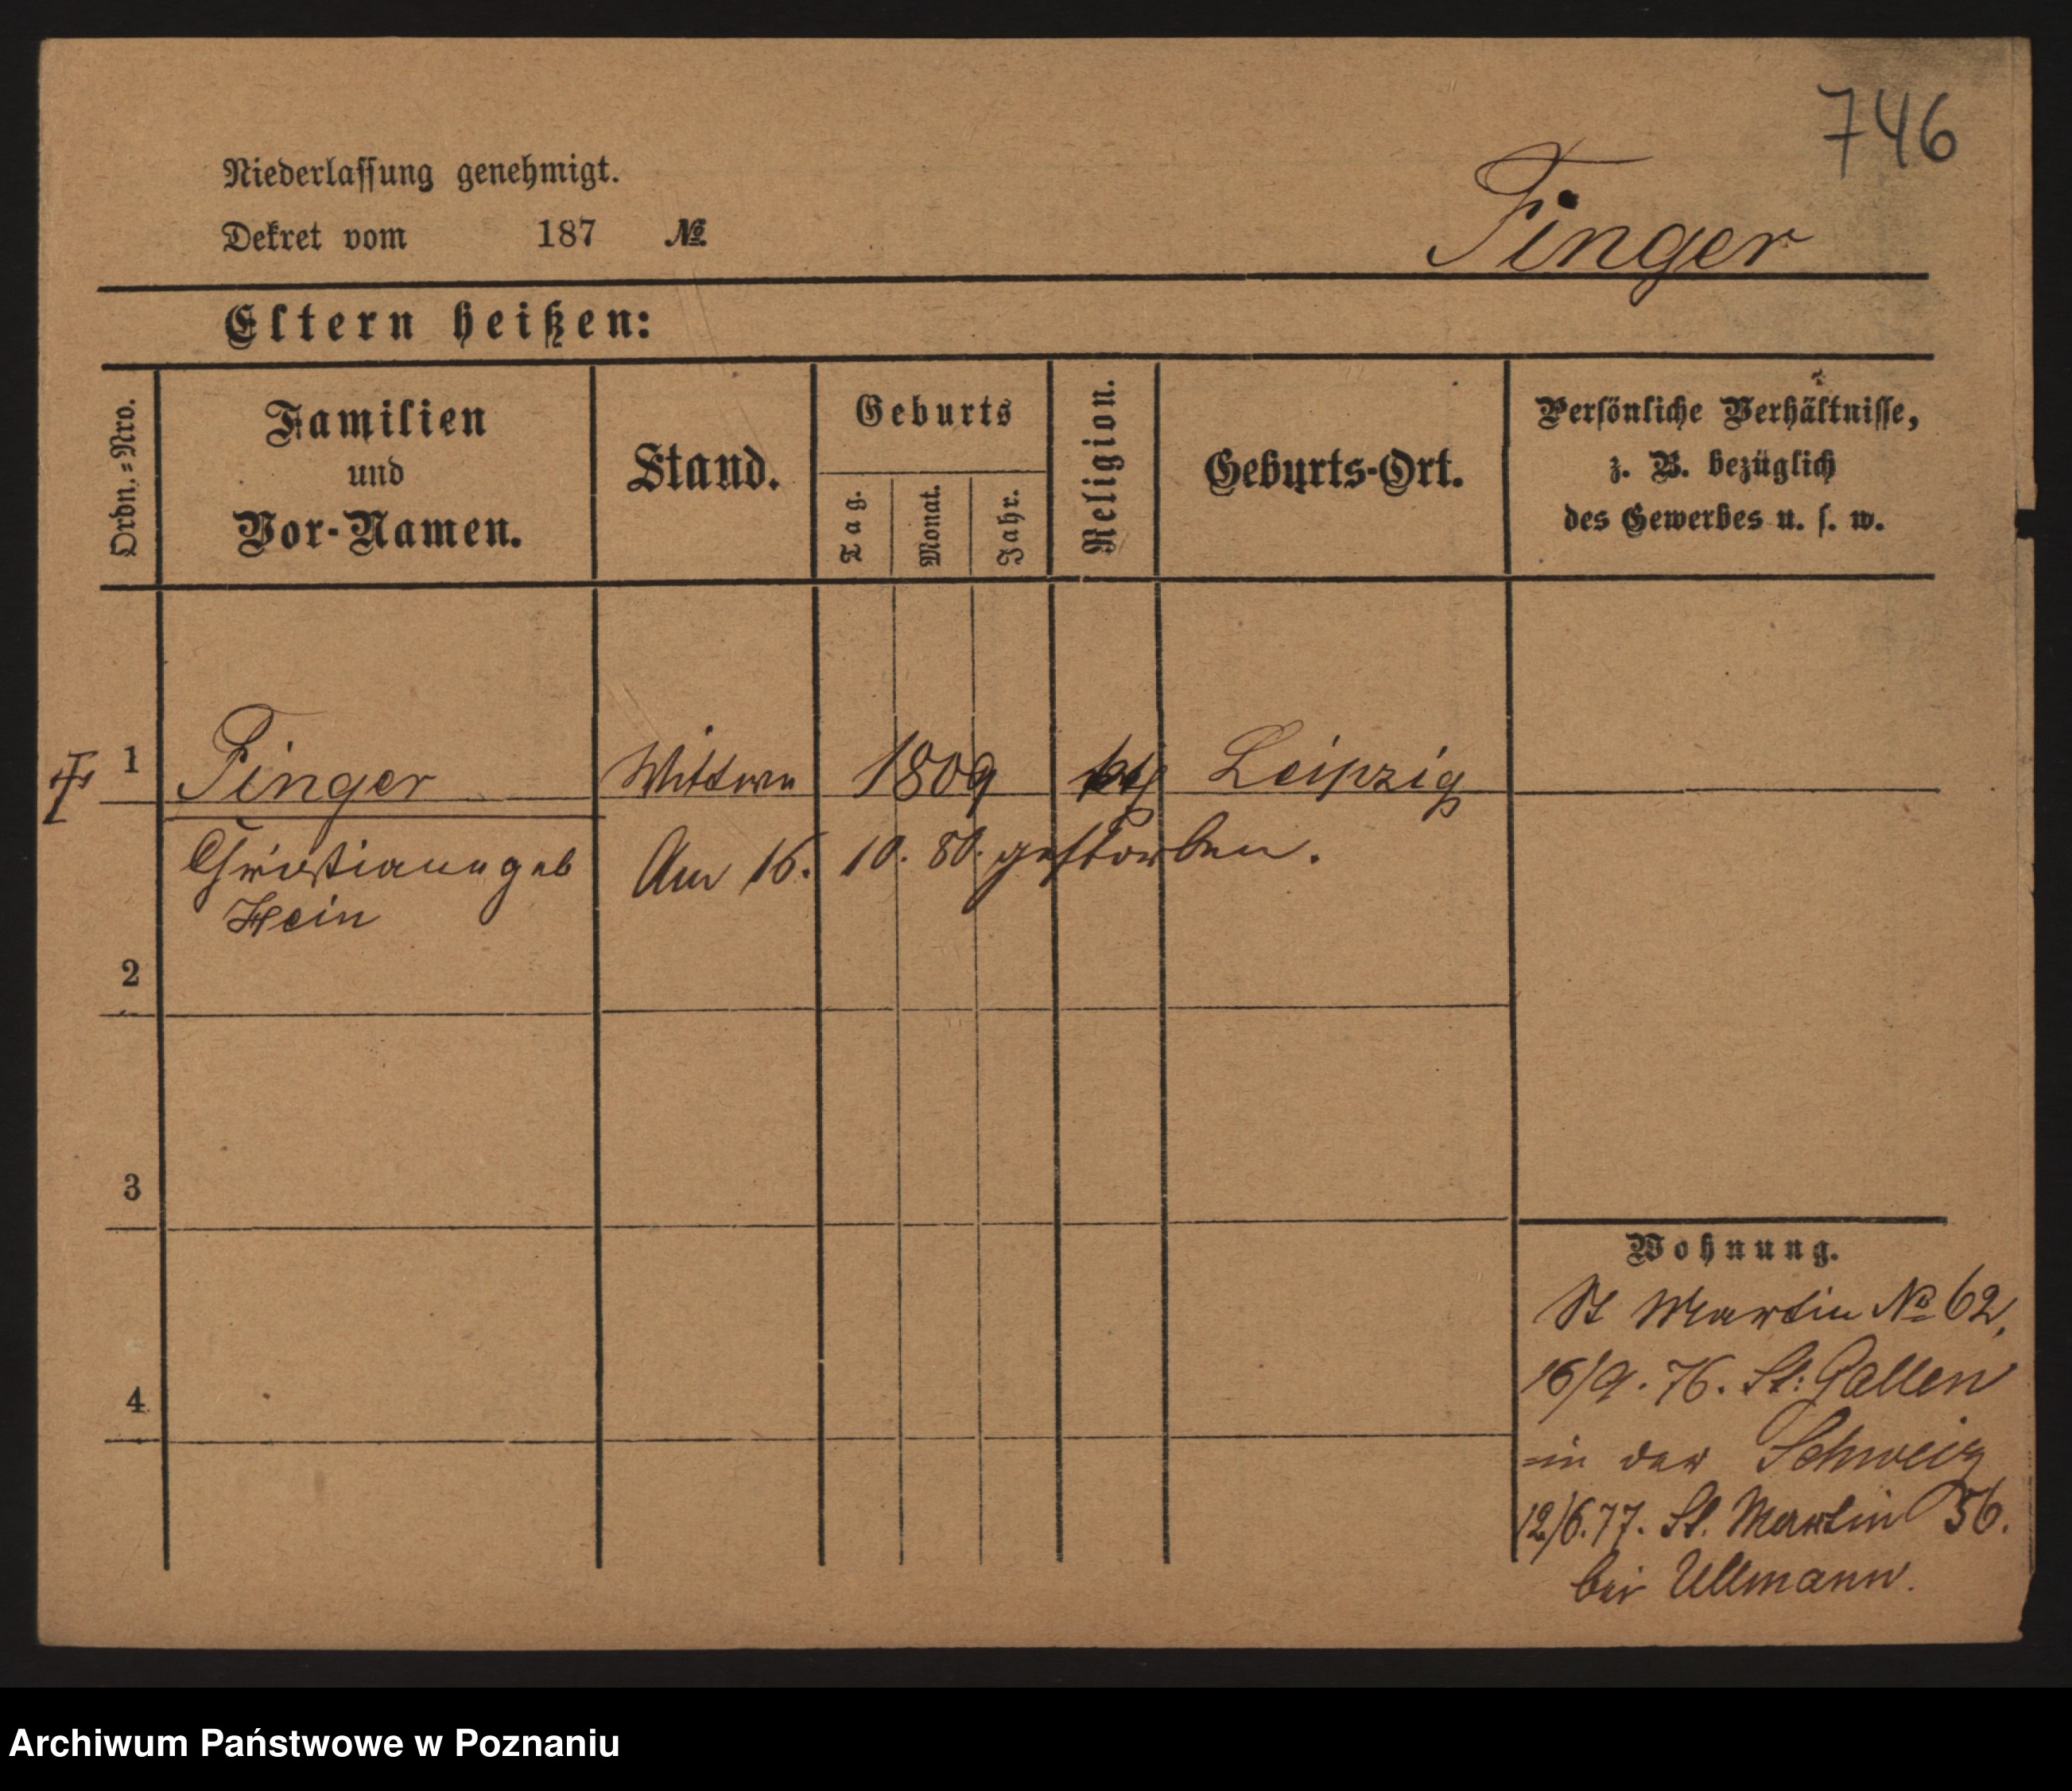 746
Niederlassung genehmigt.
Dekret vom 187 №
Finger
Eltern heißen:
Ordn.=Nro.
Familien
und
Vor-Namen.
Stand.
Geburts
Tag.
Monat.
Jahr.
Religion.
Geburts-Ort.
Persönliche Verhältnisse,
z. B. bezüglich
des Gewerbes u. s. w.
1 Finger Wittwe 1809 Leipzig
Christiane geb
Hein
Am 16. 10. 80. gestorben.
2
3
4
Wohnung.
St Martin № 62,
16/9. 76. St: Gallen
in der Schweiz
12/6. 77. St. Martin 56.
bei Ullmann.
Archiwum Państwowe w Poznaniu